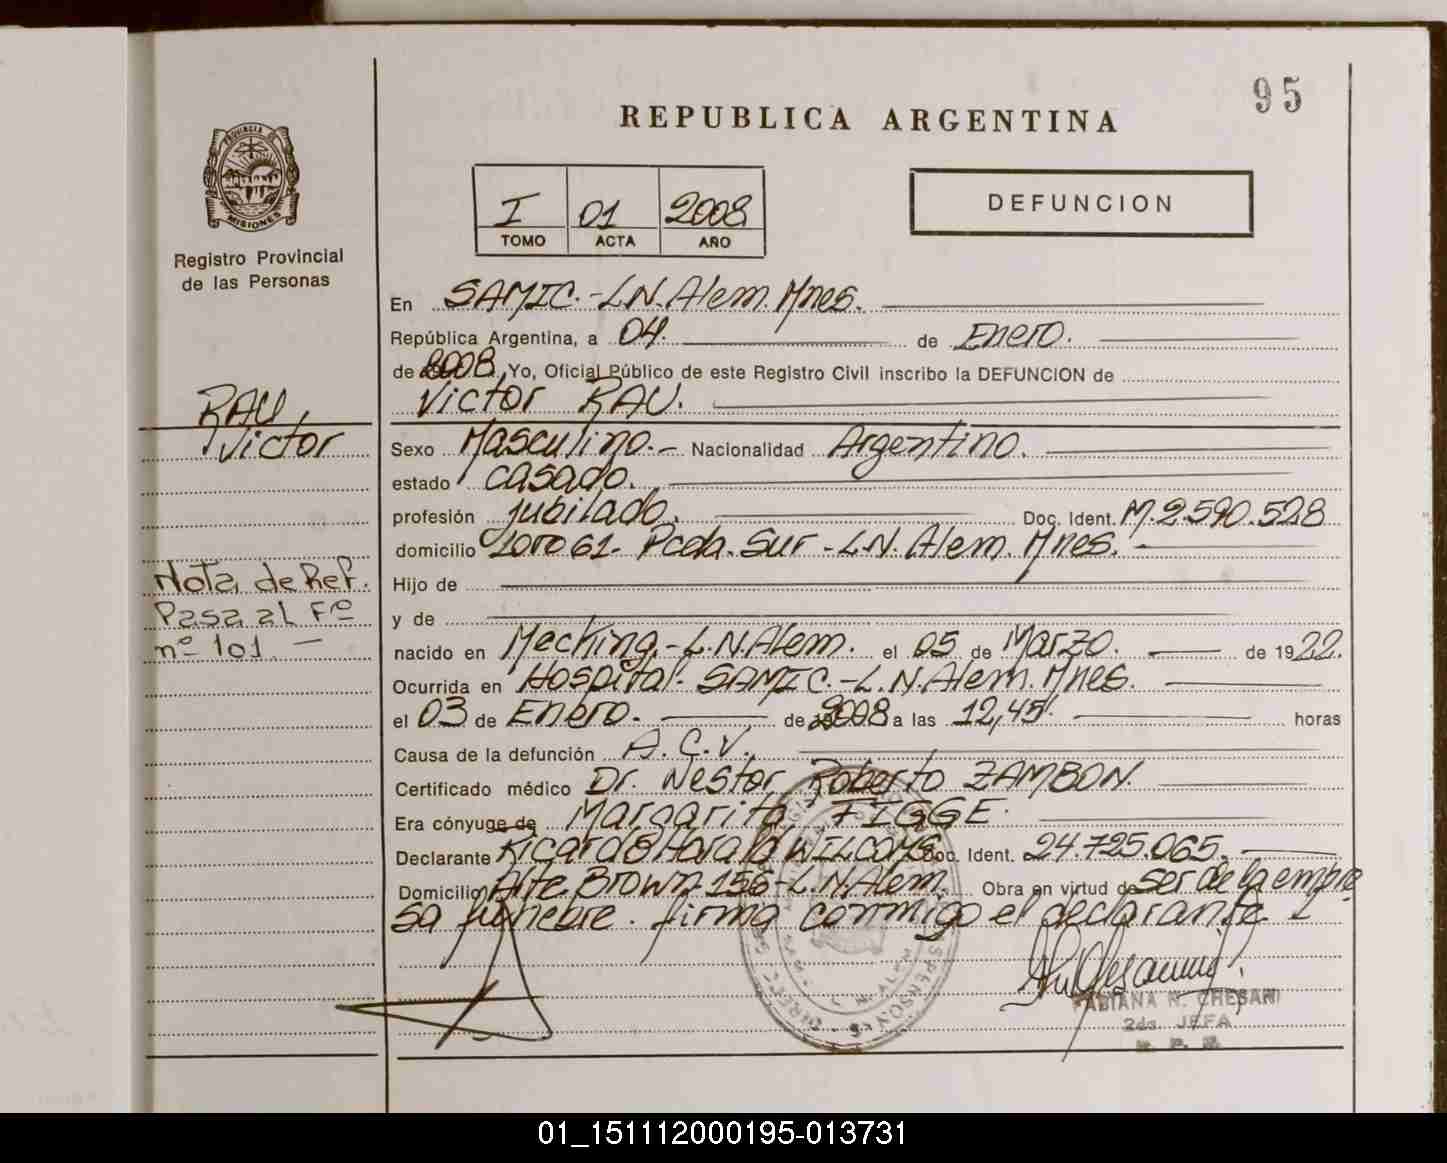 95
REPUBLICA ARGENTINA
PROVINCIA DE
MISIONES
Registro Provincial
de las Personas
I 01 2008
TOMO ACTA AÑO
DEFUNCION
En SAMIC.-L.N.Alem.Mnes.
República Argentina, a 04. de Enero.
de 2008, Yo, Oficial Público de este Registro Civil inscribo la DEFUNCION de
Victor RAU.
RAU,
Victor
Sexo Masculino.- Nacionalidad Argentino.
estado casado.
profesión jubilado. Doc. Ident. M.2.590.528
domicilio Loro 61- Pcela. Sur-L.N. Alem. Mnes.
Nota de Ref.
Pasa al Fº
nº 101 -
Hijo de
y de
nacido en Mecking.-L.N.Alem. el 05 de Marzo. de 1922.
Ocurrida en Hospital- SAMIC.-L.N.Alem.Mnes.
el 03 de Enero. de 2008 a las 12,45'. horas
Causa de la defunción A.C.V.
Certificado médico Dr. Nestor Roberto ZAMBON.
Era cónyuge de Margarita FIGGE.
Declarante Ricardo Harald Doc. Ident. 24.725.065.
Domicilio Alte. Brown 156-L.N.Alem. Obra en virtud de ser de la empre
sa funebre. firma conmigo el declarante
FABIANA N. CHESANI
2da. JEFA
R. P. P.
01_151112000195-013731